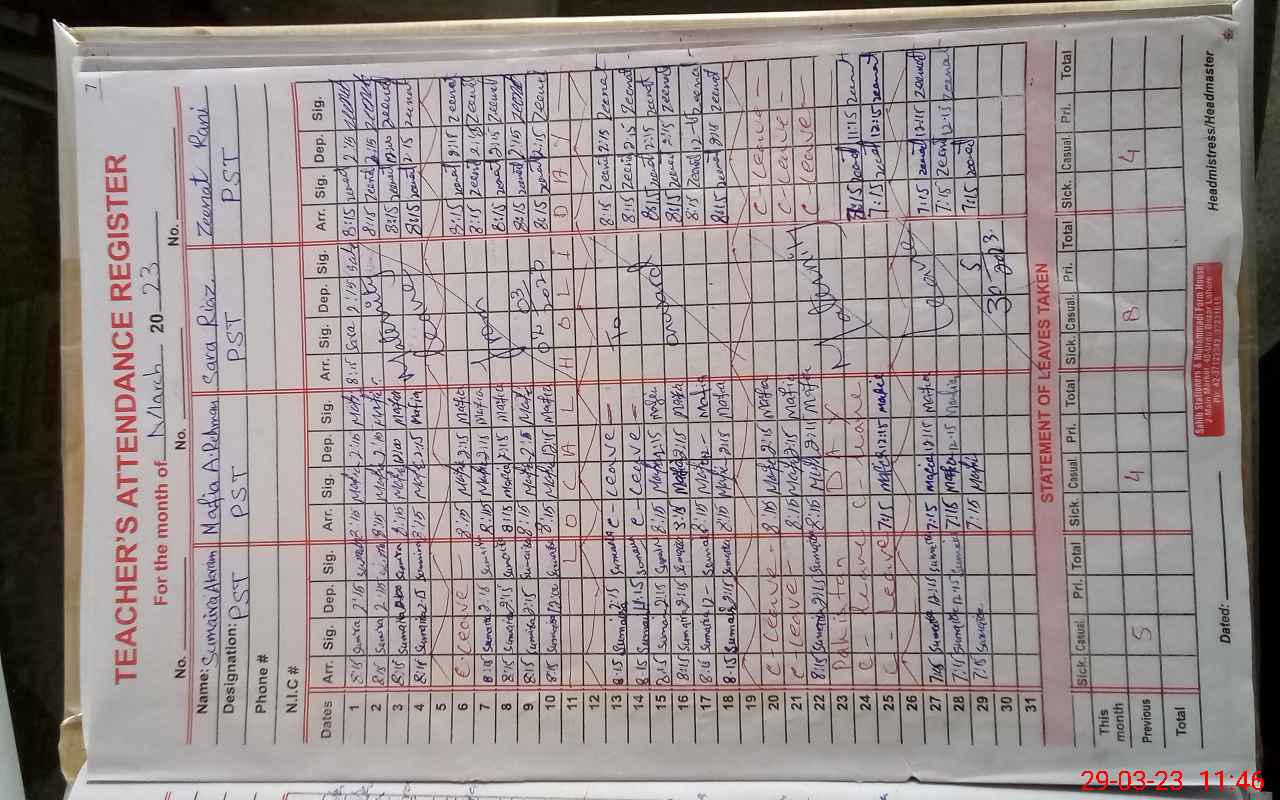 7
TEACHER'S ATTENDANCE REGISTER
For the month of March 20 23
No. No. No. No.
Name: Sumaira Akram Mafia A.Rehman Sara Riaz Zeenat Rani
Designation: PST PST PST PST
Phone #
N.I.C #
Dates Arr. Sig. Dep. Sig. Arr. Sig. Dep. Sig. Arr. Sig. Dep. Sig. Arr. Sig. Dep. Sig.
1 8:15 Sumaira 2:15 Sumaira 8:15 Mafia 2:15 Mafia 8:15 Sara 2:15 Sara 8:15 Zeenat 2:15 Zeenat
2 8:15 Sumaira 2:15 Sumaira 8:15 Mafia 2:15 Mafia 8:15 Zeenat 2:15 Zeenat
3 8:15 Sumaira 12:00 Sumaira 8:15 Mafia 12:00 Mafia Maternity 8:15 Zeenat 12:00 Zeenat
4 8:15 Sumaira 2:15 Sumaira 8:15 Mafia 2:15 Mafia Leave 8:15 Zeenat 2:15 Zeenat
5
6 C-Leave 8:15 Mafia 2:15 Mafia 8:15 Zeenat 2:15 Zeenat
7 8:15 Sumaira 2:15 Sumaira 8:15 Mafia 2:15 Mafia From 8:15 Zeenat 2:15 Zeenat
8 8:15 Sumaira 2:15 Sumaira 8:15 Mafia 2:15 Mafia 8:15 Zeenat 2:15 Zeenat
9 8:15 Sumaira 2:15 Sumaira 8:15 Mafia 2:15 Mafia 8:15 Zeenat 2:15 Zeenat
10 8:15 Sumaira 12:00 Sumaira 8:15 Mafia 12:15 Mafia 02 03 2023 8:15 Zeenat 12:15 Zeenat
11 L O C A L H O L I D A Y
12
13 8:15 Sumaira 2:15 Sumaira C-Leave To 8:15 Zeenat 2:15 Zeenat
14 8:15 Sumaira 2:15 Sumaira C-Leave 8:15 Zeenat 2:15 Zeenat
15 8:15 Sumaira 2:15 Sumaira 8:15 Mafia 2:15 Mafia onward 8:15 Zeenat 2:15 Zeenat
16 8:15 Sumaira 2:15 Sumaira 8:15 Mafia 2:15 Mafia 8:15 Zeenat 2:15 Zeenat
17 8:15 Sumaira 12- Sumaira 8:15 Mafia 12- Mafia 8:15 Zeenat 12- Zeenat
18 8:15 Sumaira 2:15 Sumaira 8:15 Mafia 2:15 Mafia 8:15 Zeenat 2:15 Zeenat
19
20 C-Leave 8:15 Mafia 2:15 Mafia C-Leave
21 C-Leave 8:15 Mafia 2:15 Mafia C-Leave
22 8:15 Sumaira 2:15 Sumaira 8:15 Mafia 2:15 Mafia Maternity C-Leave
23 Pakistan DAY
24 C-Leave C-Leave 7:15 Zeenat 11:15 Zeenat
25 C-Leave 7:15 Mafia 12:15 Mafia 7:15 Zeenat 12:15 Zeenat
26
27 7:15 Sumaira 12:15 Sumaira 7:15 Mafia 12:15 Mafia Leave 7:15 Zeenat 12:15 Zeenat
28 7:15 Sumaira 12:15 Sumaira 7:15 Mafia 12:15 Mafia 7:15 Zeenat 12:15 Zeenat
29 7:15 Sumaira 7:15 Mafia 7:15 Zeenat
30 30 5 2023.
31
STATEMENT OF LEAVES TAKEN
Sick. Casual Pri. Total Sick. Casual Pri. Total Sick. Casual Pri. Total Sick. Casual Pri. Total
This month
Previous 5 4 B 4
Total
Dated:
Headmistress/Headmaster
Sahib Stationers & Muhammadi Form House
29-03-23 11:46